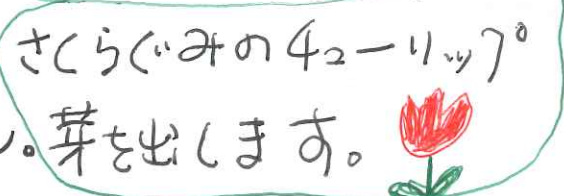 さくらぐみのチューリップ
芽を出します。